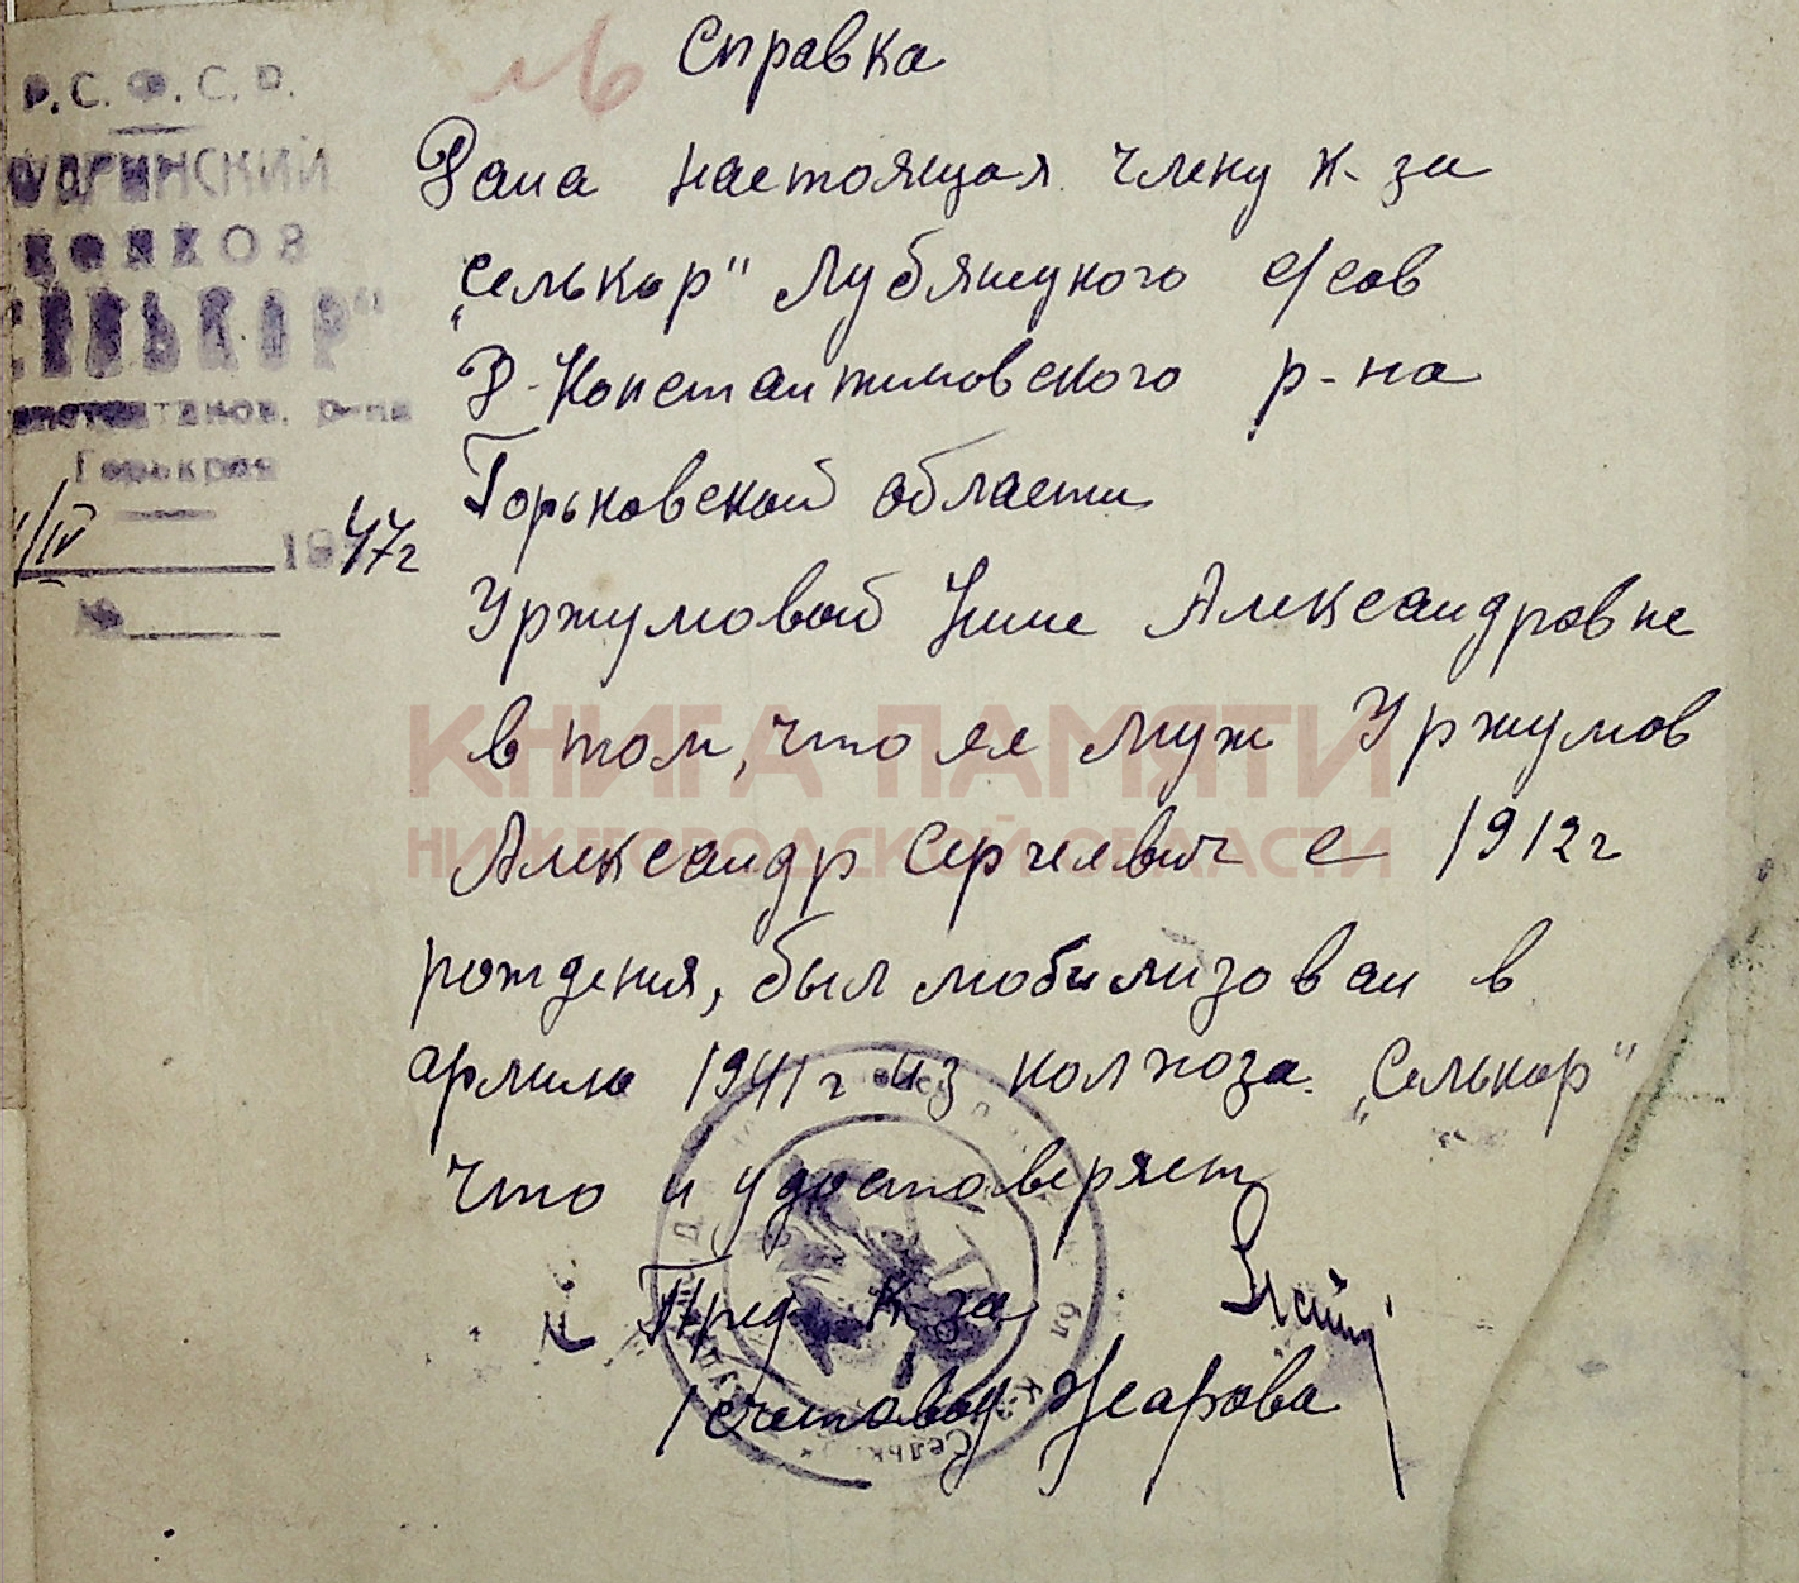 Справка
Р.С.Ф.С.Р.
КОЛХОЗ
СЕЛЬКОР"
р-на
Горькрая
/IV 1947г
№
Дана настоящая члену к-за
„Селькор" Лубянцкого с/сов
В-Константиновского р-на
Горьковской области
Уржумовой Нине Александровне
в том, что ее муж Уржумов
Александр Сергеевич с 1912г
рождения, был мобилизован в
армию 1941г из колхоза „Селькор"
что и удостоверяет
Пред. к-за
/счетовод Жарова
КНИГА ПАМЯТИ
НИЖЕГОРОДСКОЙ ОБЛАСТИ